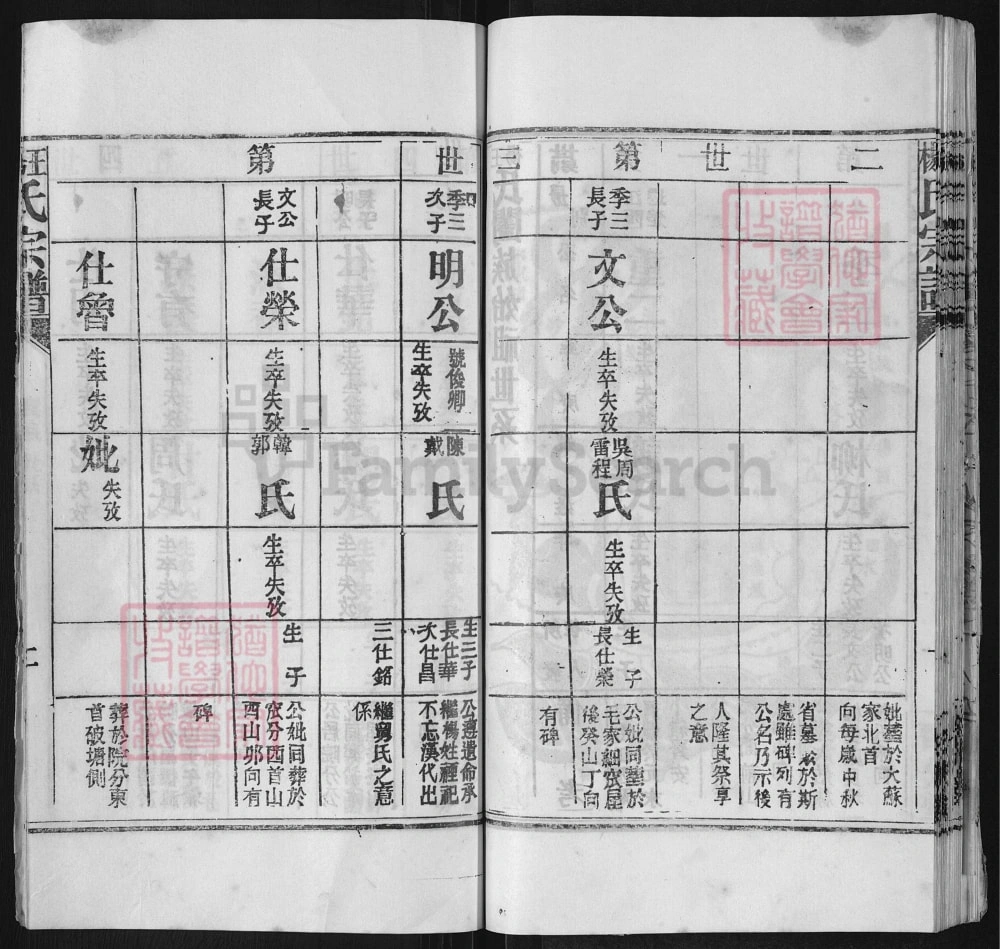 楊氏宗譜
二世第三
妣墓於大蘇
家北首
向每歲中秋
省墓於斯
處雖碑列有
公名乃示後
人隆其祭享
之意
季三
長子
文公
生卒失攷
吳周
雷程
氏
生卒失攷
生 子
長仕榮
公妣同墓於
毛家細窊屋
後癸山丁向
有碑
世第
季三
次子
明公
號俊卿
生卒失攷
陳
戴
氏
生三子
長仕華
次仕昌
三仕銘
公遵遺命承
繼楊姓禋祀
不忘漢代出
繼舅氏之意
係
文公
長子
仕榮
生卒失攷
韓
郭
氏
生卒失攷
生 子
公妣同葬於
窊分西首山
酉山卯向有
碑
仕魯
生卒失攷
妣
失攷
葬於院分東
首破塘側
汪氏宗譜
FamilySearch